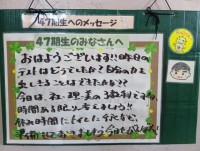 47期生へのメッセージ
47期生のみなさんへ
おはようございます!!昨日の
テストはどうでしたか?自分の力を
出しきることはできましたか??
今日は、社・理・英の3教科です。
時間ある限り、考えましょう!!
休み時間にトイレに行くなど、